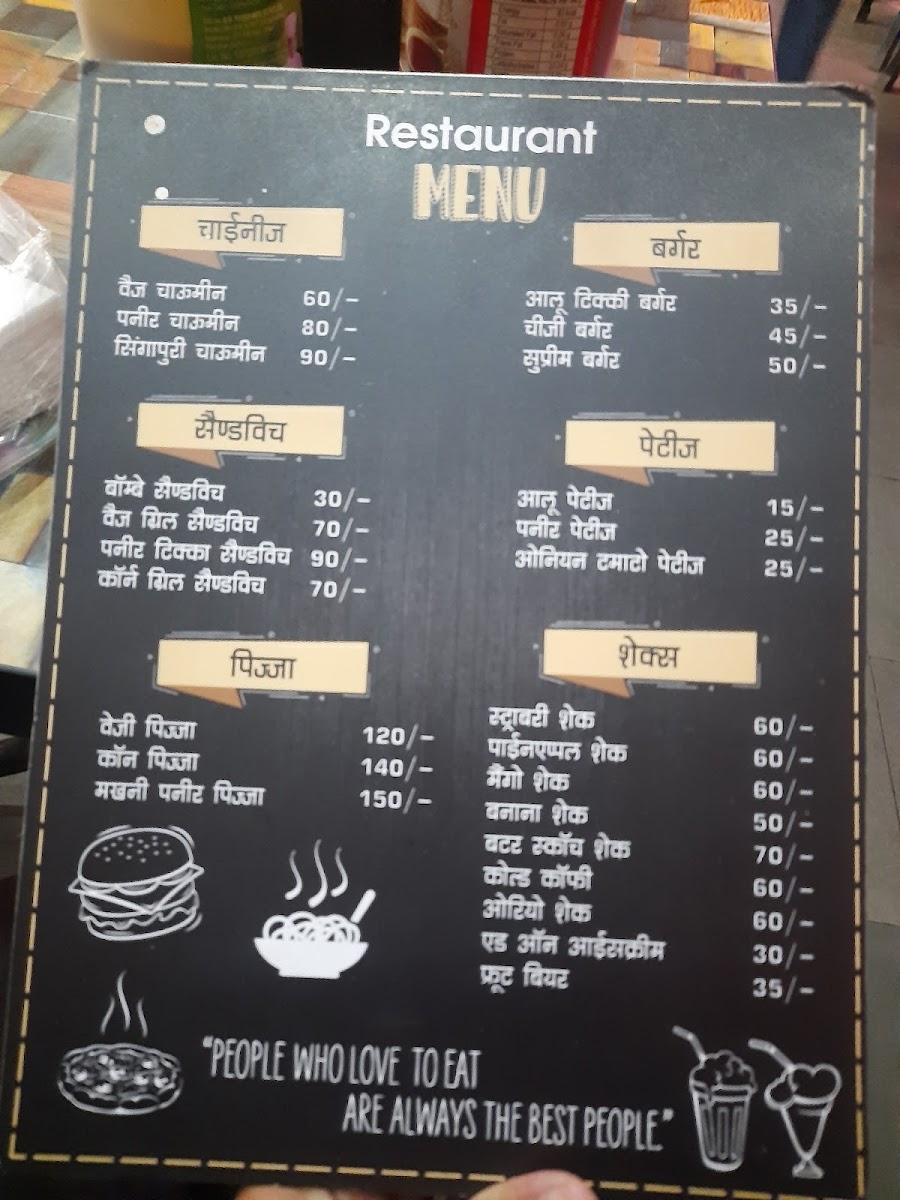 Restaurant
MENU
चाईनीज
वैज चाऊमीन 60/-
पनीर चाऊमीन 80/-
सिंगापुरी चाऊमीन 90/-
सैण्डविच
बॉम्बे सैण्डविच 30/-
वैज ग्रिल सैण्डविच 70/-
पनीर टिक्का सैण्डविच 90/-
कॉर्न ग्रिल सैण्डविच 70/-
पिज्जा
वेजी पिज्जा 120/-
कॉन पिज्जा 140/-
मखनी पनीर पिज्जा 150/-
बर्गर
आलू टिक्की बर्गर 35/-
चीजी बर्गर 45/-
सुप्रीम बर्गर 50/-
पेटीज
आलू पेटीज 15/-
पनीर पेटीज 25/-
ओनियन टमाटो पेटीज 25/-
शेक्स
स्ट्राबरी शेक 60/-
पाईनएप्पल शेक 60/-
मैंगो शेक 60/-
बनाना शेक 50/-
बटर स्कॉच शेक 70/-
कोल्ड कॉफी 60/-
ओरियो शेक 60/-
एड ऑन आईसक्रीम 30/-
फ्रूट बियर 35/-
"PEOPLE WHO LOVE TO EAT
ARE ALWAYS THE BEST PEOPLE"